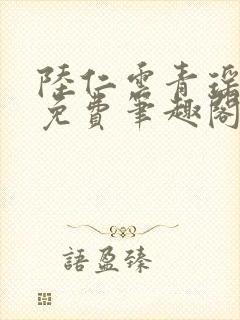 陸仁雲青瑶
免費筆趣閣
語盈臻